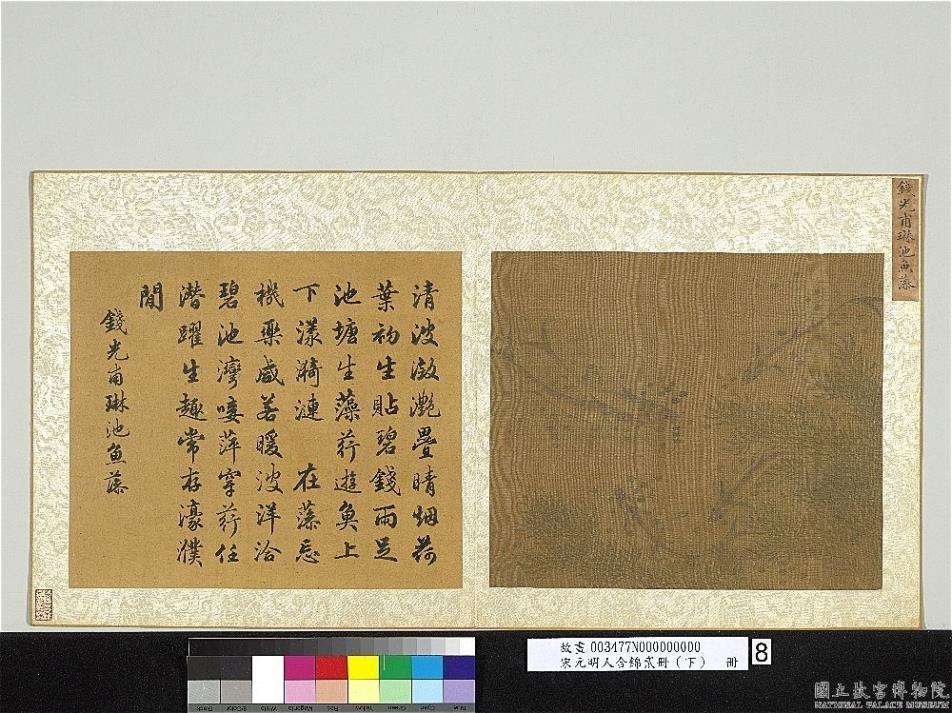 錢光甫琳池魚藻
清波澂灔疊晴烟荷
葉初生貼碧錢雨足
池塘生藻荇遊魚上
下漾漪漣 在藻忘
機樂咸若暖波洋洽
碧池灣唼萍穿荇任
潛躍生趣常存濠濮
間
錢光甫琳池魚藻
故畫 003477N000000000
宋元明人合錦貳冊（下） 冊 8
國立故宮博物院
NATIONAL PALACE MUSEUM